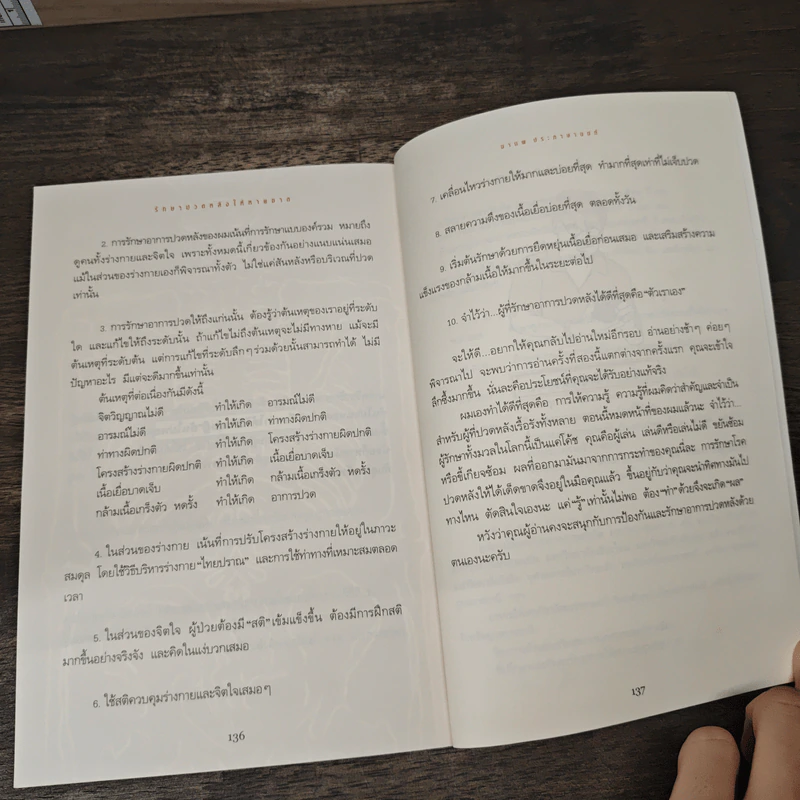 รักษาปวดหลังให้หายขาด
2. การรักษาอาการปวดหลังของผมเน้นที่การรักษาแบบองค์รวม หมายถึง
ดูคนทั้งร่างกายและจิตใจ เพราะทั้งหมดนี้เกี่ยวข้องกันอย่างแนบแน่นเสมอ
แม้ในส่วนของร่างกายเองก็พิจารณาทั้งตัว ไม่ใช่แค่สันหลังหรือบริเวณที่ปวด
เท่านั้น
3. การรักษาอาการปวดให้ถึงแก่นนั้น ต้องรู้ว่าต้นเหตุของเราอยู่ที่ระดับ
ใด และแก้ไขให้ถึงระดับนั้น ถ้าแก้ไขไม่ถึงต้นเหตุจะไม่มีทางหาย แม้จะมี
ต้นเหตุที่ระดับต้น แต่การแก้ไขที่ระดับลึกๆ ร่วมด้วยนั้นสามารถทำได้ ไม่มี
ปัญหาอะไร มีแต่จะดีมากขึ้นเท่านั้น
ต้นเหตุที่ต่อเนื่องกันมีดังนี้
จิตวิญญาณไม่ดี ทำให้เกิด อารมณ์ไม่ดี
อารมณ์ไม่ดี ทำให้เกิด ท่าทางผิดปกติ
ท่าทางผิดปกติ ทำให้เกิด โครงสร้างร่างกายผิดปกติ
โครงสร้างร่างกายผิดปกติ ทำให้เกิด เนื้อเยื่อบาดเจ็บ
เนื้อเยื่อบาดเจ็บ ทำให้เกิด กล้ามเนื้อเกร็งตัว หดรั้ง
กล้ามเนื้อเกร็งตัว หดรั้ง ทำให้เกิด อาการปวด
4. ในส่วนของร่างกาย เน้นที่การปรับโครงสร้างร่างกายให้อยู่ในภาวะ
สมดุล โดยใช้วิธีบริหารร่างกาย “ไทยปราณ” และการใช้ท่าทางที่เหมาะสมตลอด
เวลา
5. ในส่วนของจิตใจ ผู้ป่วยต้องมี “สติ” เข้มแข็งขึ้น ต้องมีการฝึกสติ
มากขึ้นอย่างจริงจัง และคิดในแง่บวกเสมอ
6. ใช้สติควบคุมร่างกายและจิตใจเสมอๆ
136
มานพ ประภาษานนท์
7. เคลื่อนไหวร่างกายให้มากและบ่อยที่สุด ทำมากที่สุดเท่าที่ไม่เจ็บปวด
8. สลายความตึงของเนื้อเยื่อบ่อยที่สุด ตลอดทั้งวัน
9. เริ่มต้นรักษาด้วยการยืดหยุ่นเนื้อเยื่อก่อนเสมอ และเสริมสร้างความ
แข็งแรงของกล้ามเนื้อให้มากขึ้นในระยะต่อไป
10. จำไว้ว่า...ผู้ที่รักษาอาการปวดหลังได้ดีที่สุดคือ “ตัวเราเอง”
จะให้ดี...อยากให้คุณกลับไปอ่านใหม่อีกรอบ อ่านอย่างช้าๆ ค่อยๆ
พิจารณาไป จะพบว่าการอ่านครั้งที่สองนี้แตกต่างจากครั้งแรก คุณจะเข้าใจ
ลึกซึ้งมากขึ้น นั่นละคือประโยชน์ที่คุณจะได้รับอย่างแท้จริง
ผมเองทำได้ดีที่สุดคือ การให้ความรู้ ความรู้ที่ผมคิดว่าสำคัญและจำเป็น
สำหรับผู้ที่ปวดหลังเรื้อรังทั้งหลาย ตอนนี้หมดหน้าที่ของผมแล้วนะ จำไว้ว่า...
ผู้รักษาทั้งมวลในโลกนี้เป็นแค่โค้ช คุณคือผู้เล่น เล่นดีหรือเล่นไม่ดี ขยันซ้อม
หรือขี้เกียจซ้อม ผลที่ออกมามันมาจากการกระทำของคุณนี่ละ การรักษาโรค
ปวดหลังให้ได้เด็ดขาดจึงอยู่ในมือคุณแล้ว ขึ้นอยู่กับว่าคุณจะนำทิศทางมันไป
ทางไหน ตัดสินใจเองนะ แค่ “รู้” เท่านั้นไม่พอ ต้อง “ทำ” ด้วยจึงจะเกิด “ผล”
หวังว่าคุณผู้อ่านคงจะสนุกกับการป้องกันและรักษาอาการปวดหลังด้วย
ตนเองนะครับ
137